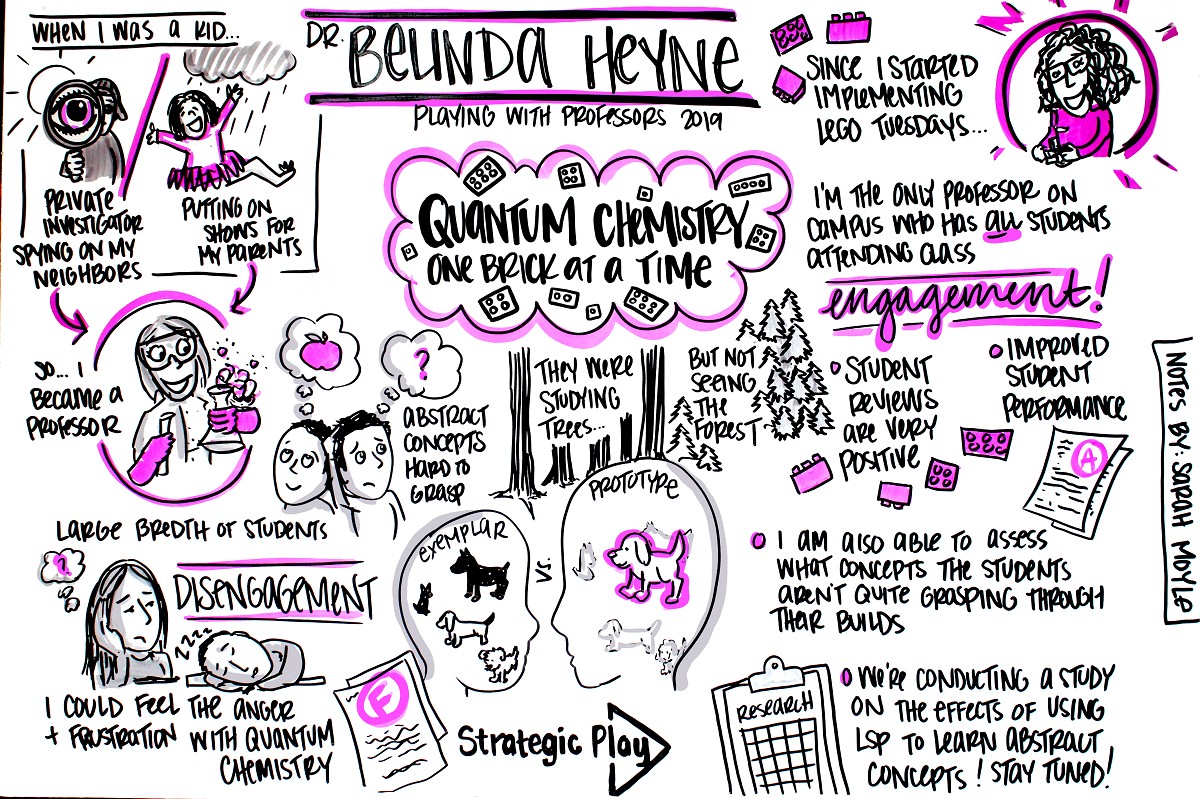 WHEN I WAS A KID...
PRIVATE
INVESTIGATOR
SPYING ON MY
NEIGHBORS
PUTTING ON
SHOWS FOR
MY PARENTS
SO... I
BECAME A
PROFESSOR
DR. BELINDA HEYNE
PLAYING WITH PROFESSORS 2019
QUANTUM CHEMISTRY
ONE BRICK AT A TIME
SINCE I STARTED
IMPLEMENTING
LEGO TUESDAYS...
I'M THE ONLY PROFESSOR ON
CAMPUS WHO HAS ALL STUDENTS
ATTENDING CLASS
engagement!
STUDENT
REVIEWS
ARE VERY
POSITIVE
IMPROVED
STUDENT
PERFORMANCE
A
?
ABSTRACT
CONCEPTS
HARD TO
GRASP
LARGE BREDTH OF STUDENTS
THEY WERE
STUDYING
TREES...
BUT NOT
SEEING
THE
FOREST
EXEMPLAR
VS.
PROTOTYPE
?
DISENGAGEMENT
ZZZZ
I COULD FEEL THE ANGER
+ FRUSTRATION WITH QUANTUM
CHEMISTRY
F
Strategic Play
I AM ALSO ABLE TO ASSESS
WHAT CONCEPTS THE STUDENTS
AREN'T QUITE GRASPING THROUGH
THEIR BUILDS
RESEARCH
WE'RE CONDUCTING A STUDY
ON THE EFFECTS OF USING
LSP TO LEARN ABSTRACT
CONCEPTS! STAY TUNED!
NOTES BY: SARAH MOYLE